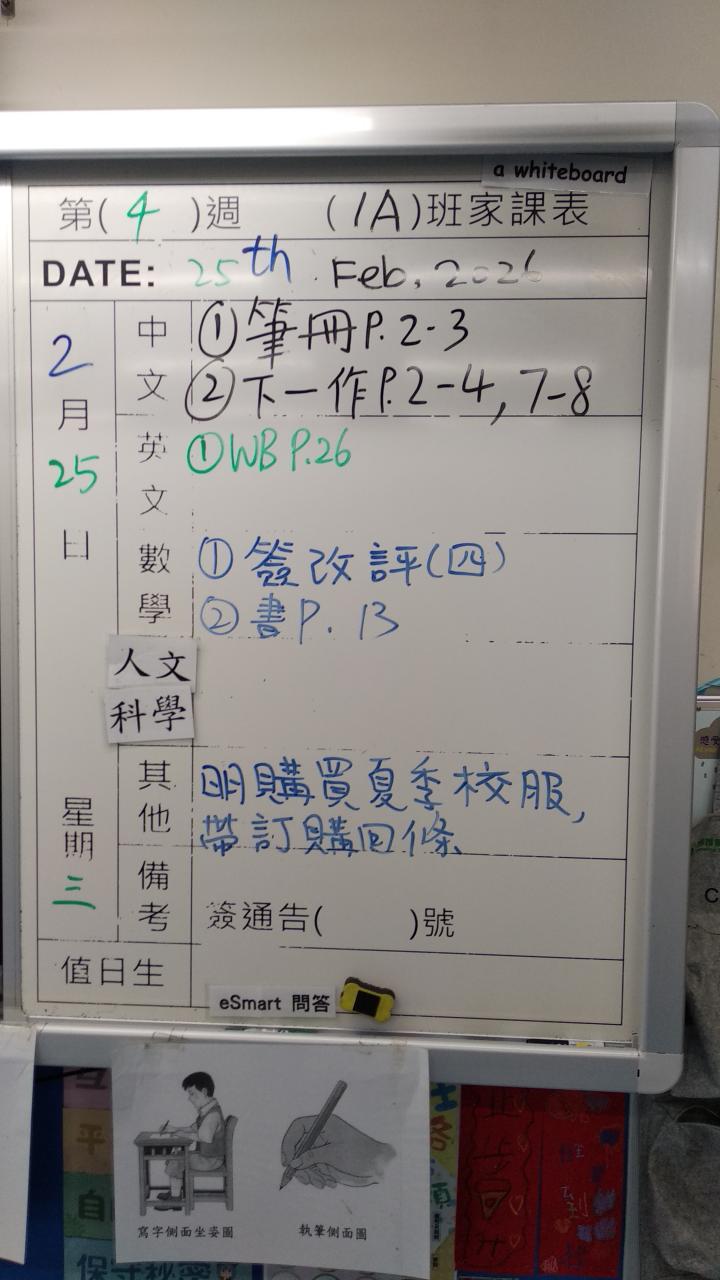 a whiteboard
第( 4 )週 (1A)班家課表
DATE: 25th Feb, 2026
2月25日
星期三
中文
①筆冊P.2-3
②下一作P.2-4, 7-8
英文
①WB P.26
數學
①簽改評(四)
②書P. 13
人文科學
其他
明購買夏季校服,
帶訂購回條
備考
簽通告( )號
值日生
eSmart 問答
寫字側面坐姿圖
執筆側面圖
保守秘密